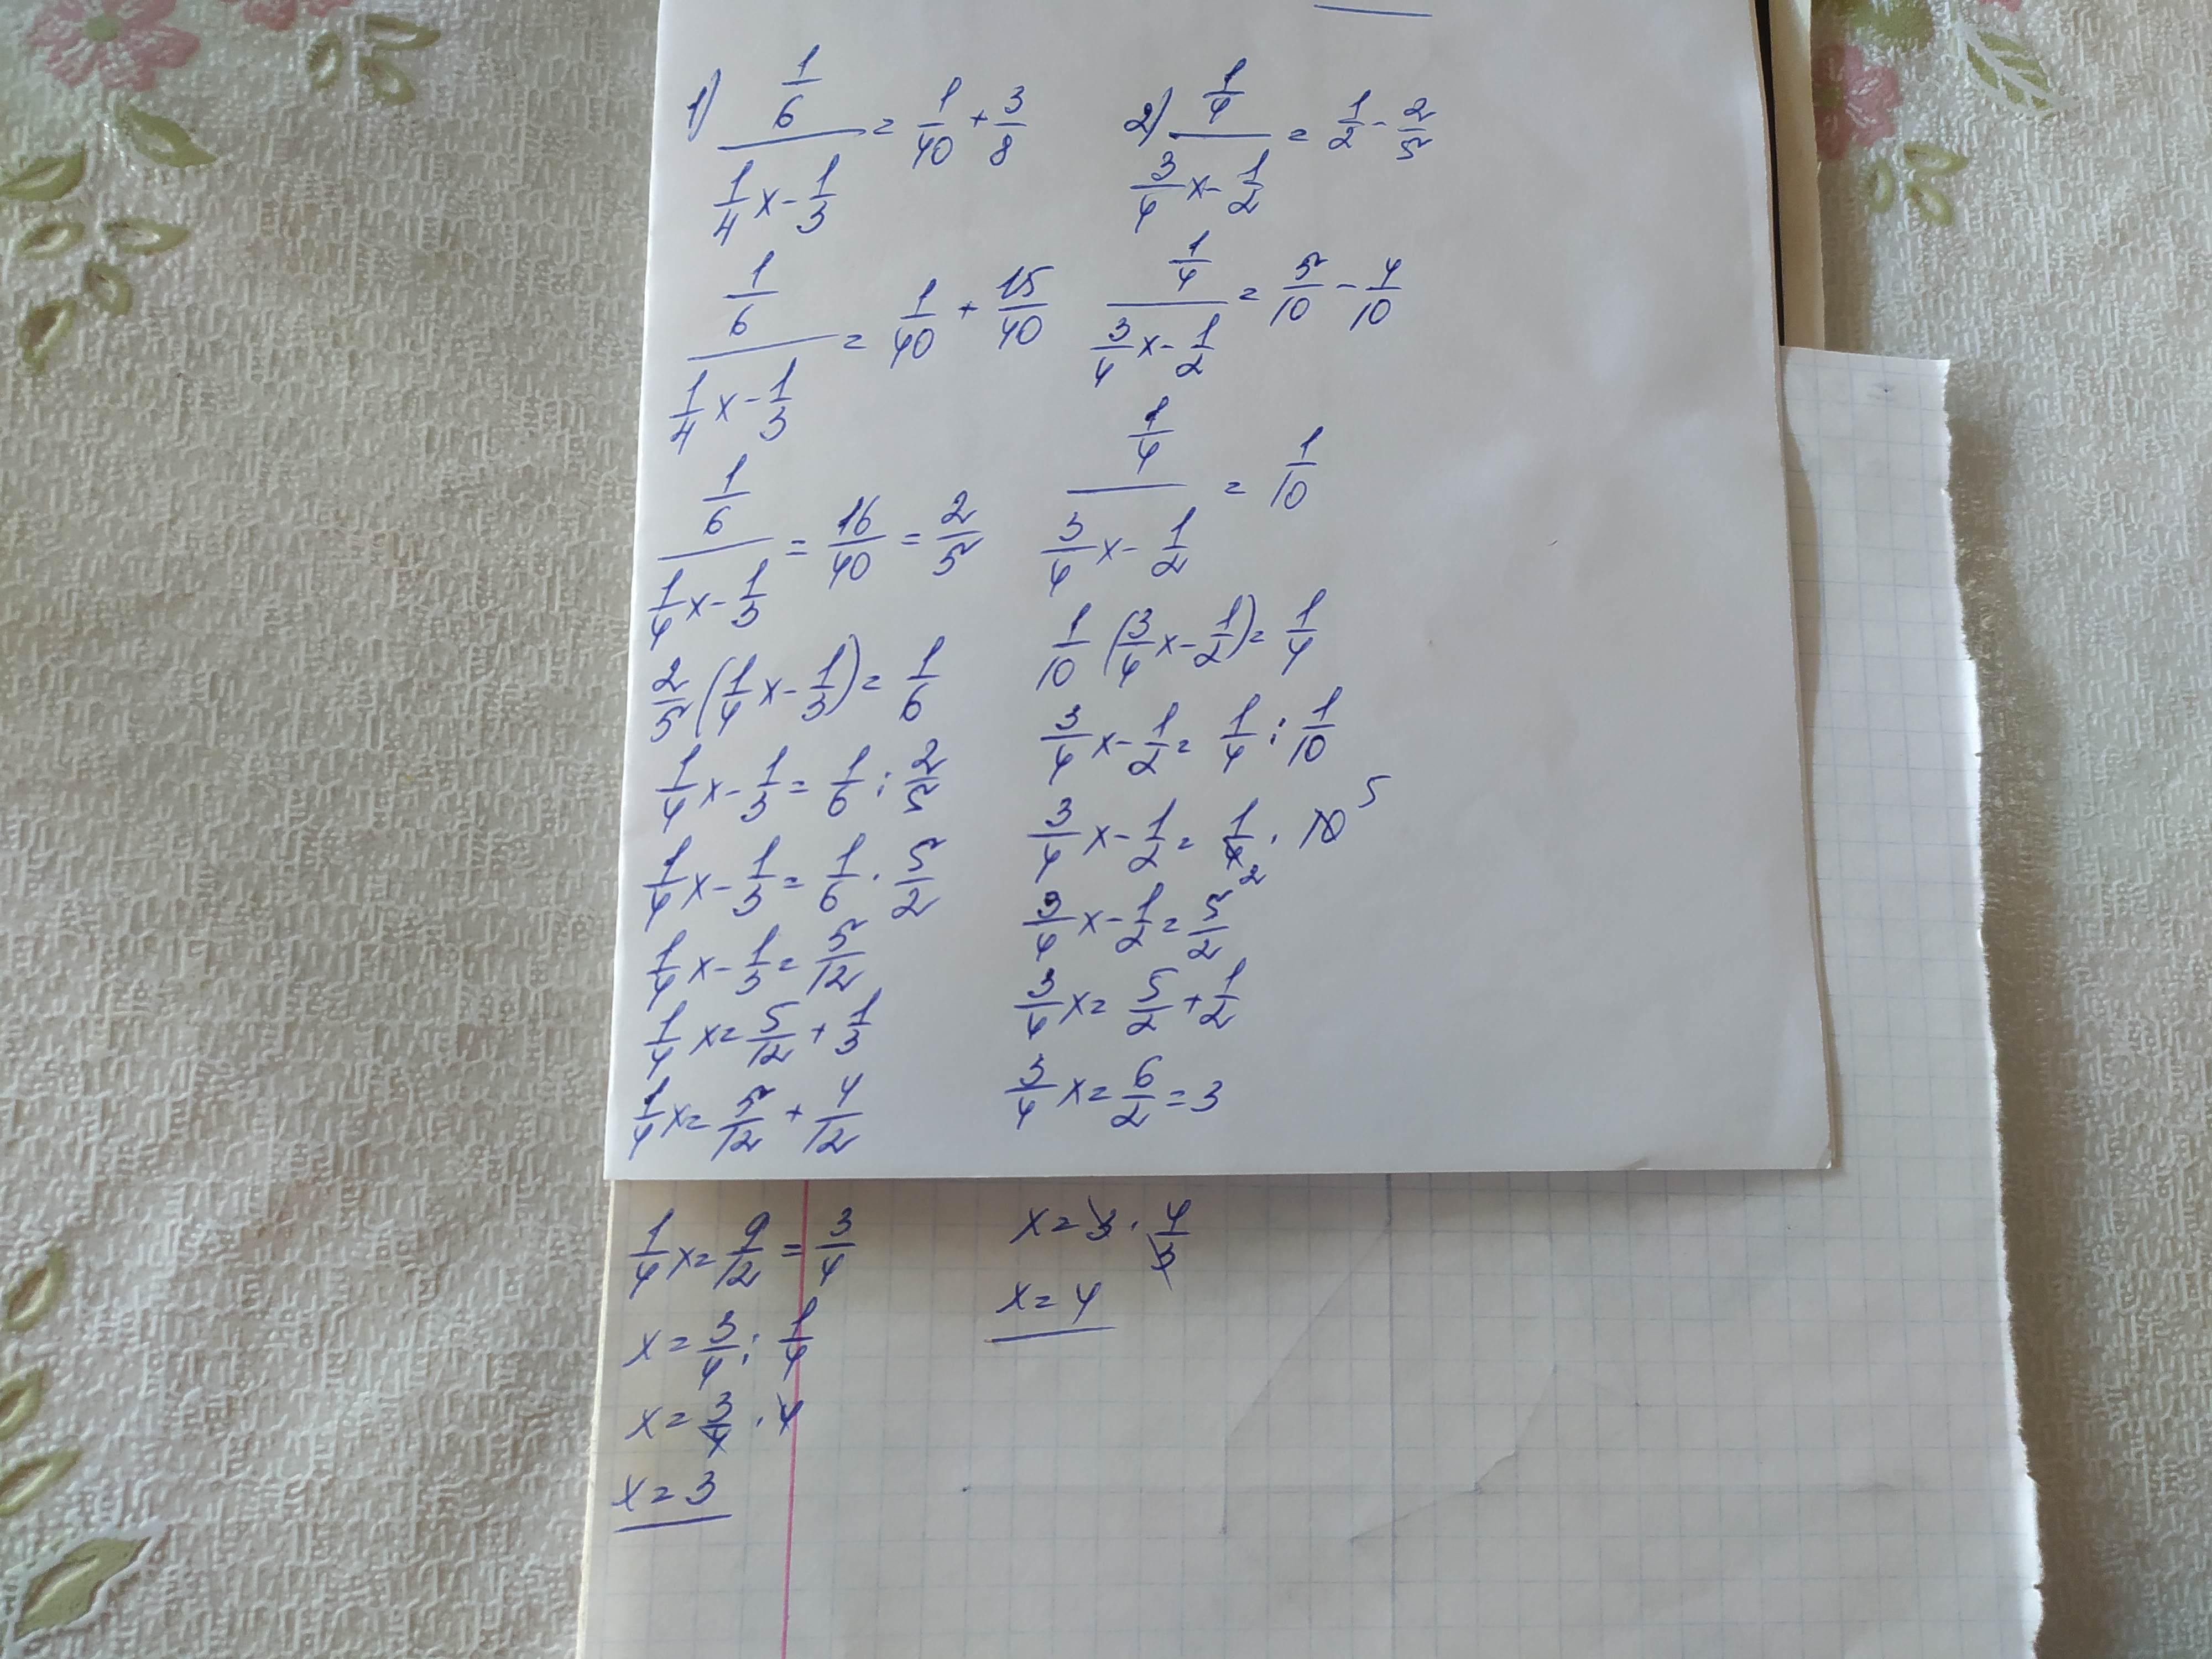 1) (1/6)/(1/4 x - 1/3) = 1/40 + 3/8
(1/6)/(1/4 x - 1/3) = 1/40 + 15/40
(1/6)/(1/4 x - 1/3) = 16/40 = 2/5
2/5 (1/4 x - 1/3) = 1/6
1/4 x - 1/3 = 1/6 : 2/5
1/4 x - 1/3 = 1/6 · 5/2
1/4 x - 1/3 = 5/12
1/4 x = 5/12 + 1/3
1/4 x = 5/12 + 4/12
1/4 x = 9/12 = 3/4
x = 3/4 : 1/4
x = 3/4 · 4
x = 3
2) (1/4)/(3/4 x - 1/2) = 1/2 - 2/5
(1/4)/(3/4 x - 1/2) = 5/10 - 4/10
(1/4)/(3/4 x - 1/2) = 1/10
1/10 (3/4 x - 1/2) = 1/4
3/4 x - 1/2 = 1/4 : 1/10
3/4 x - 1/2 = 1/4 2 · 10 5
3/4 x - 1/2 = 5/2
3/4 x = 5/2 + 1/2
3/4 x = 6/2 = 3
x = 3 · 4/3
x = 4